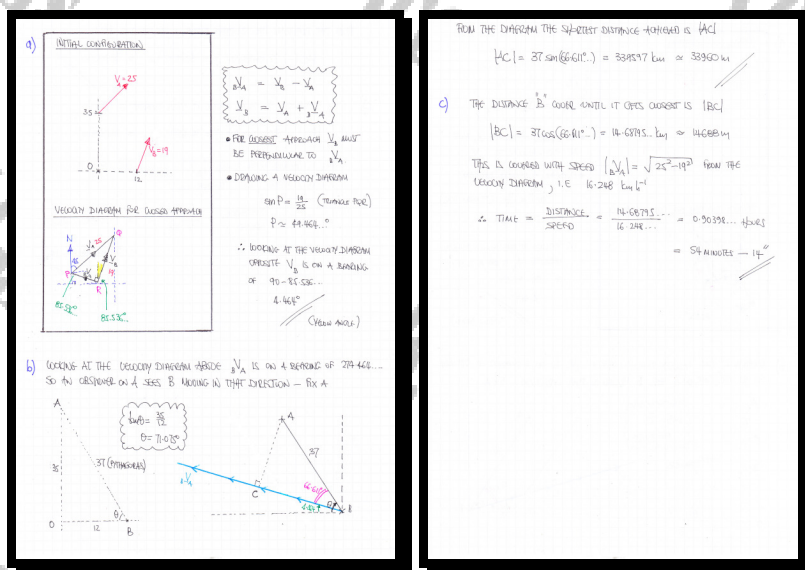 a)
INITIAL CONFIGURATION
V_A = 25
35
V_B = 19
O
12
VELOCITY DIAGRAM FOR CLOSEST APPROACH
N
Q
25
V_A
45
P
V_B
19
R
85.536°
85.536°...
BV_A = V_B - V_A
V_B = V_A + BV_A
• FOR CLOSEST APPROACH V_B MUST
BE PERPENDICULAR TO BV_A
• DRAWING A VELOCITY DIAGRAM
sin P = 19/25 (TRIANGLE PQR)
P ≈ 49.464...°
∴ LOOKING AT THE VELOCITY DIAGRAM
OPPOSITE V_B IS ON A BEARING
OF 90 - 85.536...
4.464°
(YELLOW ANGLE)
b) LOOKING AT THE VELOCITY DIAGRAM ABOVE BV_A IS ON A BEARING OF 274.464...
SO AN OBSERVER ON A SEES B MOVING IN THAT DIRECTION - FIX A
A
35
37 (PYTHAGORAS)
O
12
θ
B
tanθ = 35/12
θ = 71.075°
A
37
BV_A
C
66.611°
4.464
θ
B
FROM THE DIAGRAM THE SHORTEST DISTANCE ACHIEVED IS |AC|
|AC| = 37 sin(66.611°...) = 33.9597 km ≈ 33960 m
c) THE DISTANCE "B" COVER UNTIL IT GETS CLOSEST IS |BC|
|BC| = 37cos(66.611°...) = 14.68795... km ≈ 14688m
THIS IS COVERED WITH SPEED |BV_A| = √25²-19² FROM THE
VELOCITY DIAGRAM, I.E 16.248 km h⁻¹
∴ TIME = DISTANCE/SPEED = 14.68795.../16.248... = 0.90398... HOURS
= 54 MINUTES - 14"